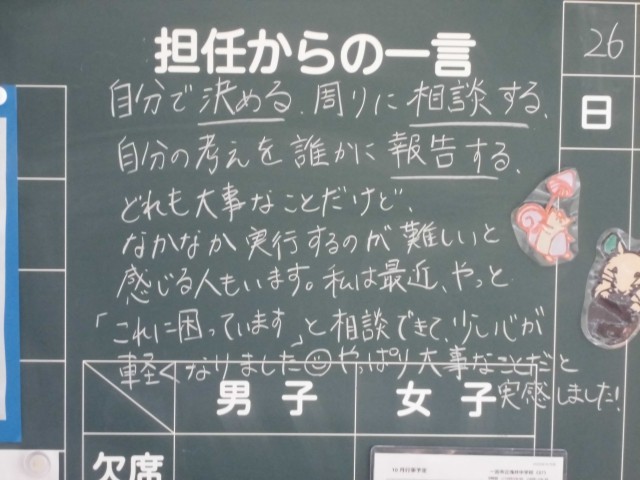 担任からの一言
26
日
自分で決める、周りに相談する、
自分の考えを誰かに報告する、
どれも大事なことだけど、
なかなか実行するのが難しいと
感じる人もいます。私は最近、やっと
「これに困っています」と相談できて、少し心が
軽くなりました☺やっぱり大事なことだと
実感しました!
男子
女子
欠席
10月行事予定